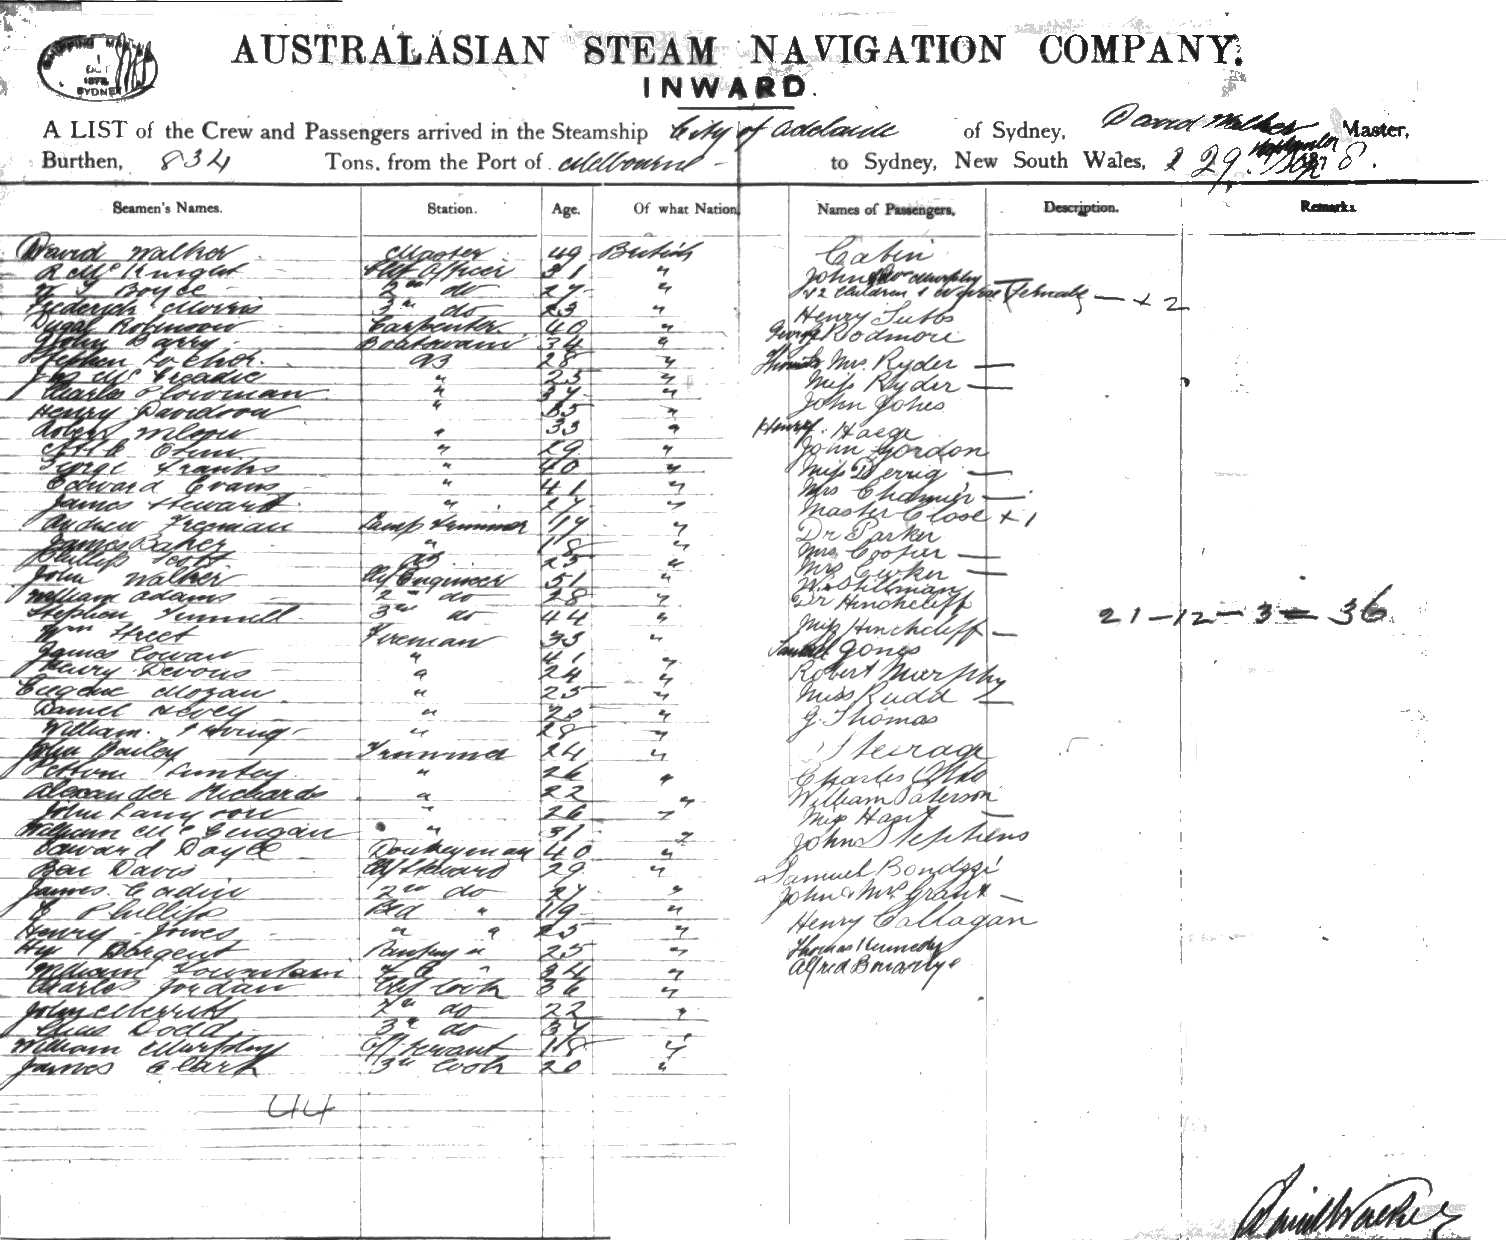 SHIPPING MASTER
1
OCT
1878
SYDNEY
AUSTRALASIAN STEAM NAVIGATION COMPANY.
INWARD.
A LIST of the Crew and Passengers arrived in the Steamship City of Adelaide of Sydney, David Walker Master,
Burthen, 834 Tons, from the Port of Melbourne to Sydney, New South Wales, 29 September 1878.
Seamen's Names. Station. Age. Of what Nation. Names of Passengers. Description. Remarks.
David Walker Master 49 British Cabin
R McKnight Chf Officer 31 " John Mrs Murphy
W J Boyce 2nd do 27 " & 2 Children & Female — + 2
Frederick Morris 3rd do 23 " Henry Tubbs
Dugal Robinson Carpenter 40 " George Rodmore
John Barry Boatswain 34 "
Stephen 28 " Mrs. Ryder —
Jas McCreadie " 25 " Miss Ryder —
Charles Plowman " 37 " John Jones
Henry Davidson " 35 "
Robert Wilson " 33 " Henry Haege
" 29 " John Gordon
George Franks " 40 " Miss Derrig —
Edward Evans " 41 " Mrs Chamier —
James Stewart " 27 " Master Close + 1
Andrew Freeman Lamp Trimmer 17 " Dr Parker
James Baker " 18 " Mrs Cooper —
Phillip Scott AB 25 " Mrs —
John Walker Chf Engineer 51 " W. Stillman
William Adams 2nd do 28 " Dr Hinchcliff
Stephen 3rd do 44 " Miss Hinchcliff — 21 — 12 — 3 = 36
Wm Street Fireman 35 "
James Cowan " 41 " Samuel Jones
Henry Devous " 24 " Robert Murphy
Eugene " 25 " Miss Rudd —
Daniel " 28 " G. Thomas
William. Irving " 28 "
John Bailey Trimmer 24 " Steerage
" 26 " Charles
Alexander Richards " 22 " William Paterson
John " 26 " Miss —
William " 31 " John Stephens
Edward Doyle Donkeyman 40 "
Ben Davis Chf Steward 29 " Samuel
James 2nd do 27 " John & Mrs Grant —
E Phillips Bed " 19 " Henry Callagan
Henry Jones " " 25 "
Hy Sargent Pantry " 25 " Thomas Kennedy
William Fountain F C " 24 " Alfred
Charles Jordan Chf Cook 36 "
John Merritt 2nd do 22 "
Dodd 3rd do 37 "
William Murphy Servant 18 "
James Clark 3rd Cook 20 "
44
David Walker